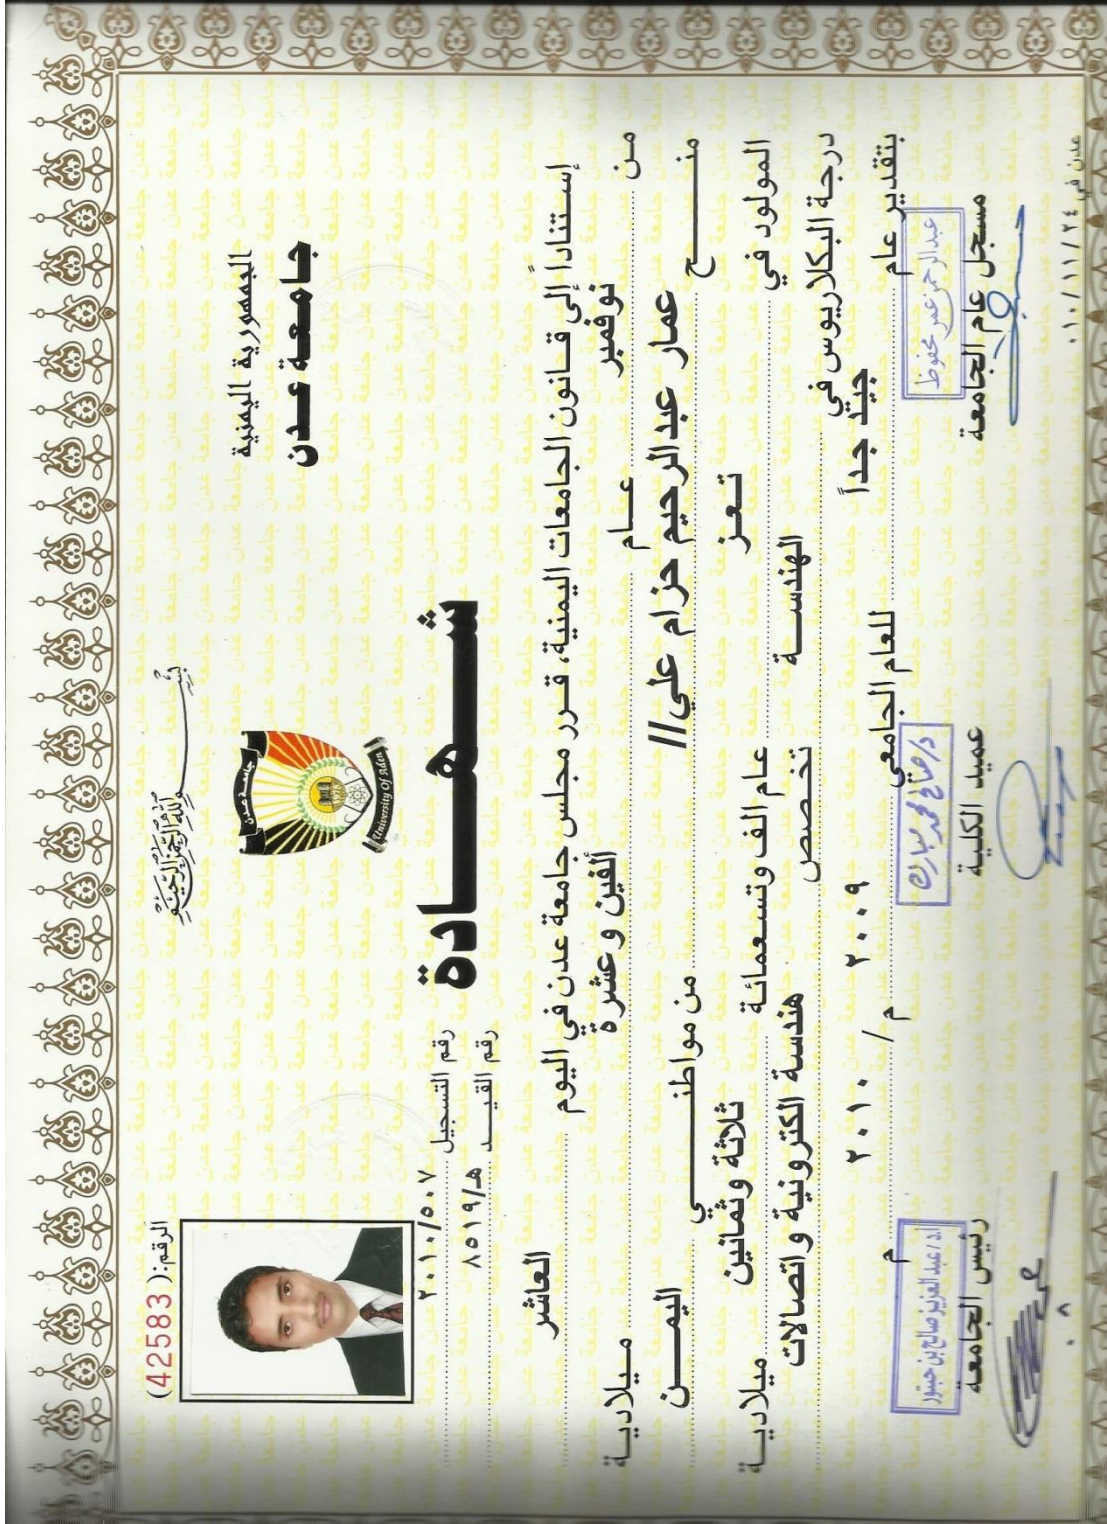 بسم الله الرحمن الرحيم
الجمهورية اليمنية
جامعة عدن
جامعة عدن
University Of Aden
الرقم: (42583)
رقم التسجيل ٢٠١٠/٥٠٧
رقم القيـــد هـ/٨٥١٩
شهادة
إستناداً إلى قانون الجامعات اليمنية، قرر مجلس جامعة عدن في اليوم العاشر
من نوفمبر عام ألفين وعشرة ميلادية
منح عمار عبدالرحيم حزام علي// من مواطني اليمن
المولود في تعز عام الف وتسعمائة ثلاثة وثمانين ميلادية
درجة البكلاريوس في الهندسة تخصص هندسة الكترونية واتصالات
بتقدير عام جيد جداً للعام الجامعي ٢٠٠٩ م / ٢٠١٠ م
عبدالرحمن عمر محفوظ
د/صالح محمد مبارك
اد/عبد العزيز صالح بن حبتور
مسجل عام الجامعة
عميد الكلية
رئيس الجامعة
عدن في ٠١٠/١١/٢٤